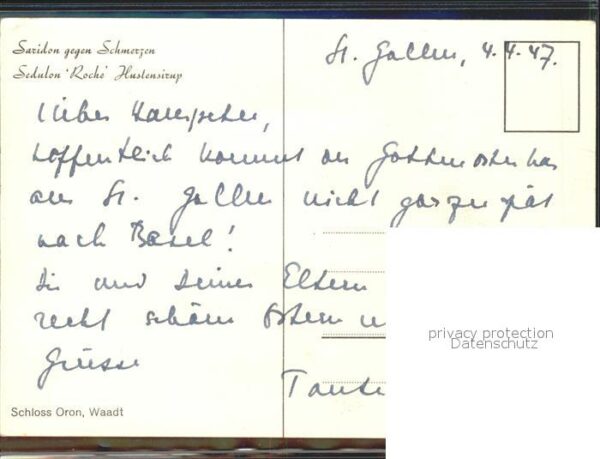 Saridon gegen Schmerzen
Sedulon 'Roche' Hustensirup
St. Gallen, 4.4.47.
Lieber Hanspeter,
hoffentlich kommt der Gottenosterhas
aus St. Gallen nicht ganz zu spät
nach Basel!
Dir und Deinen Eltern
recht schöne Ostern u
Grüsse
Tante
Schloss Oron, Waadt
privacy protection
Datenschutz